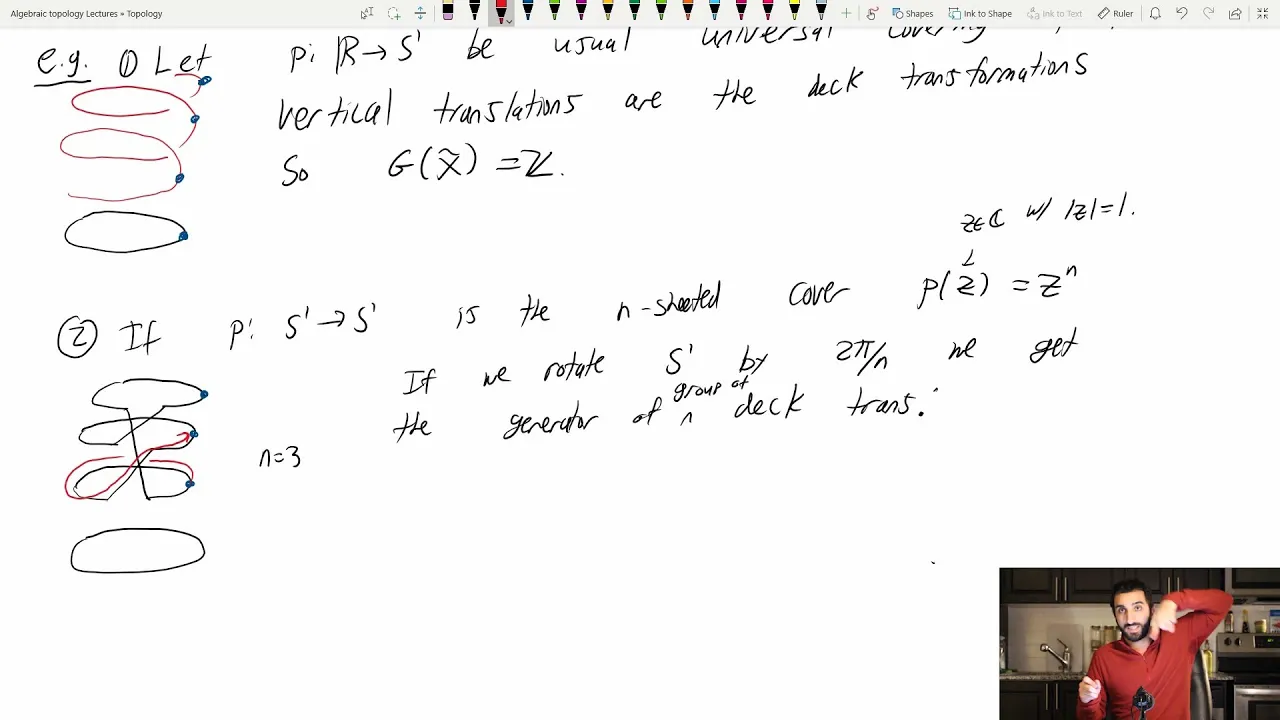 Algebraic topology Lectures » Topology
Shapes
Ink to Shape
Ink to Text
Ruler
e.g. ① Let p: ℝ→S¹ be usual universal covering
vertical translations are the deck transformations
So G(X̃) = ℤ.
z∈ℂ w/ |z|=1.
② If p: S¹→S¹ is the n-sheeted cover p(z) = zⁿ
If we rotate S¹ by 2π/n we get
the generator of group of n deck trans.
n=3